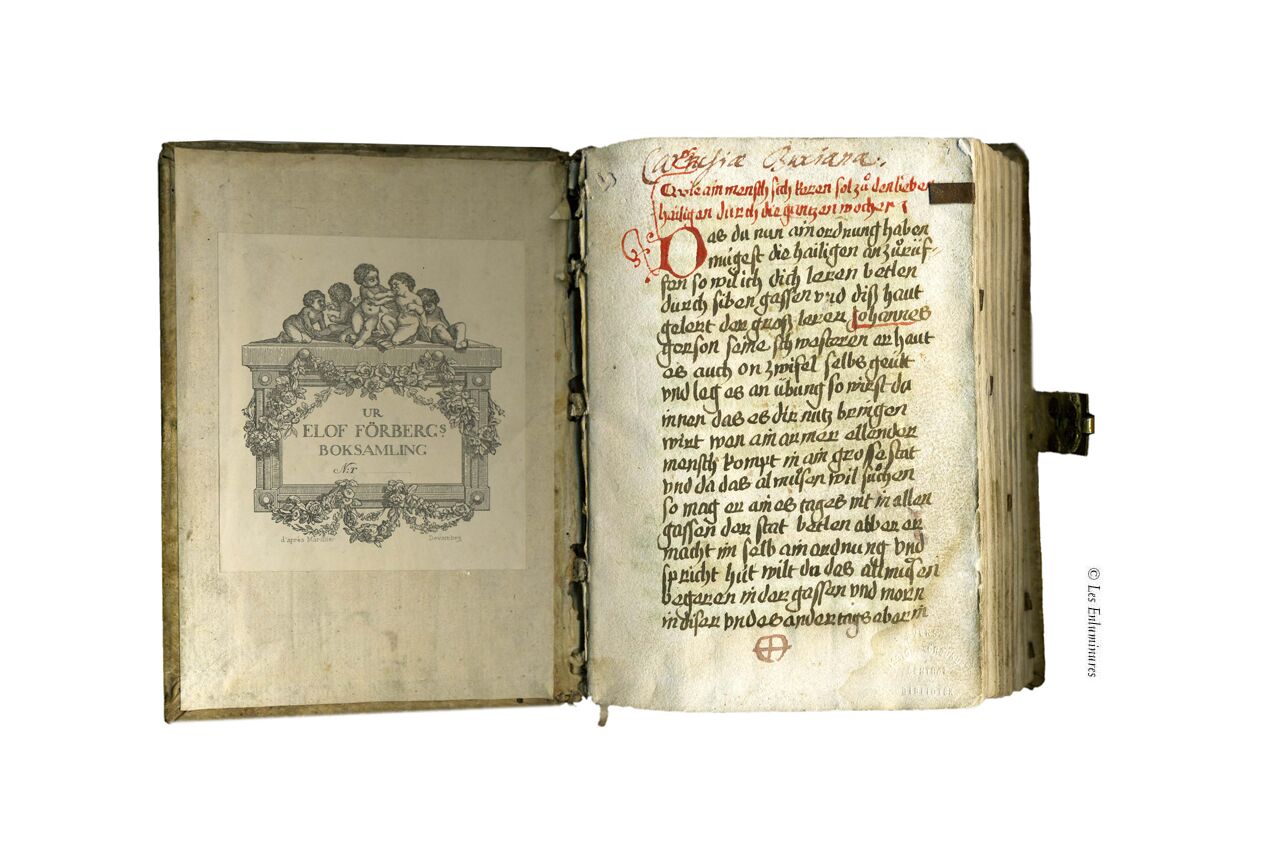 UR
ELOF FÖRBERGS
BOKSAMLING
N:r
d'après Marillier
Cartusiæ Buxianæ.
Wie ain mensch sich keren sol zů den lieben
hailigen durch die gantzen wochen
Das du nun ain ordnung haben
mügest die hailigen an zůrüf-
fen so wil ich dich leren betlen
durch siben gassen vnd diß haut
gelert der groß lerer Johannes
gerson seine schwesteren er haut
es auch on zwifel selbs geüt
vnd leg es an übung so wirst du
innen das es dir nutz bringen
wirt wen ain armer ellender
mensch kompt in ain grosse stat
vnd da das almůsen wil sůchen
so mag er aines tages nit in allen
gassen der stat betlen abber er
macht im selb ain ordnung vnd
spricht hüt wilt du das almůsen
begeren in der gassen vnd morn
in diser vnd es ander tags aber in
BIBLIOTEK
© Les Enluminures